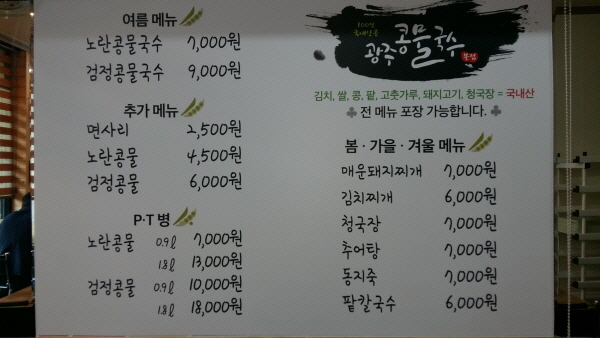 여름 메뉴
노란콩물국수 7,000원
검정콩물국수 9,000원
추가 메뉴
면사리 2,500원
노란콩물 4,500원
검정콩물 6,000원
P·T 병
노란콩물 0.9ℓ 7,000원
1.8ℓ 13,000원
검정콩물 0.9ℓ 10,000원
1.8ℓ 18,000원
100%
국내산콩
광주콩물국수
본점
김치, 쌀, 콩, 팥, 고춧가루, 돼지고기, 청국장 = 국내산
♣ 전 메뉴 포장 가능합니다. ♣
봄·가을·겨울 메뉴
매운돼지찌개 7,000원
김치찌개 6,000원
청국장 7,000원
추어탕 7,000원
동지죽 7,000원
팥칼국수 6,000원